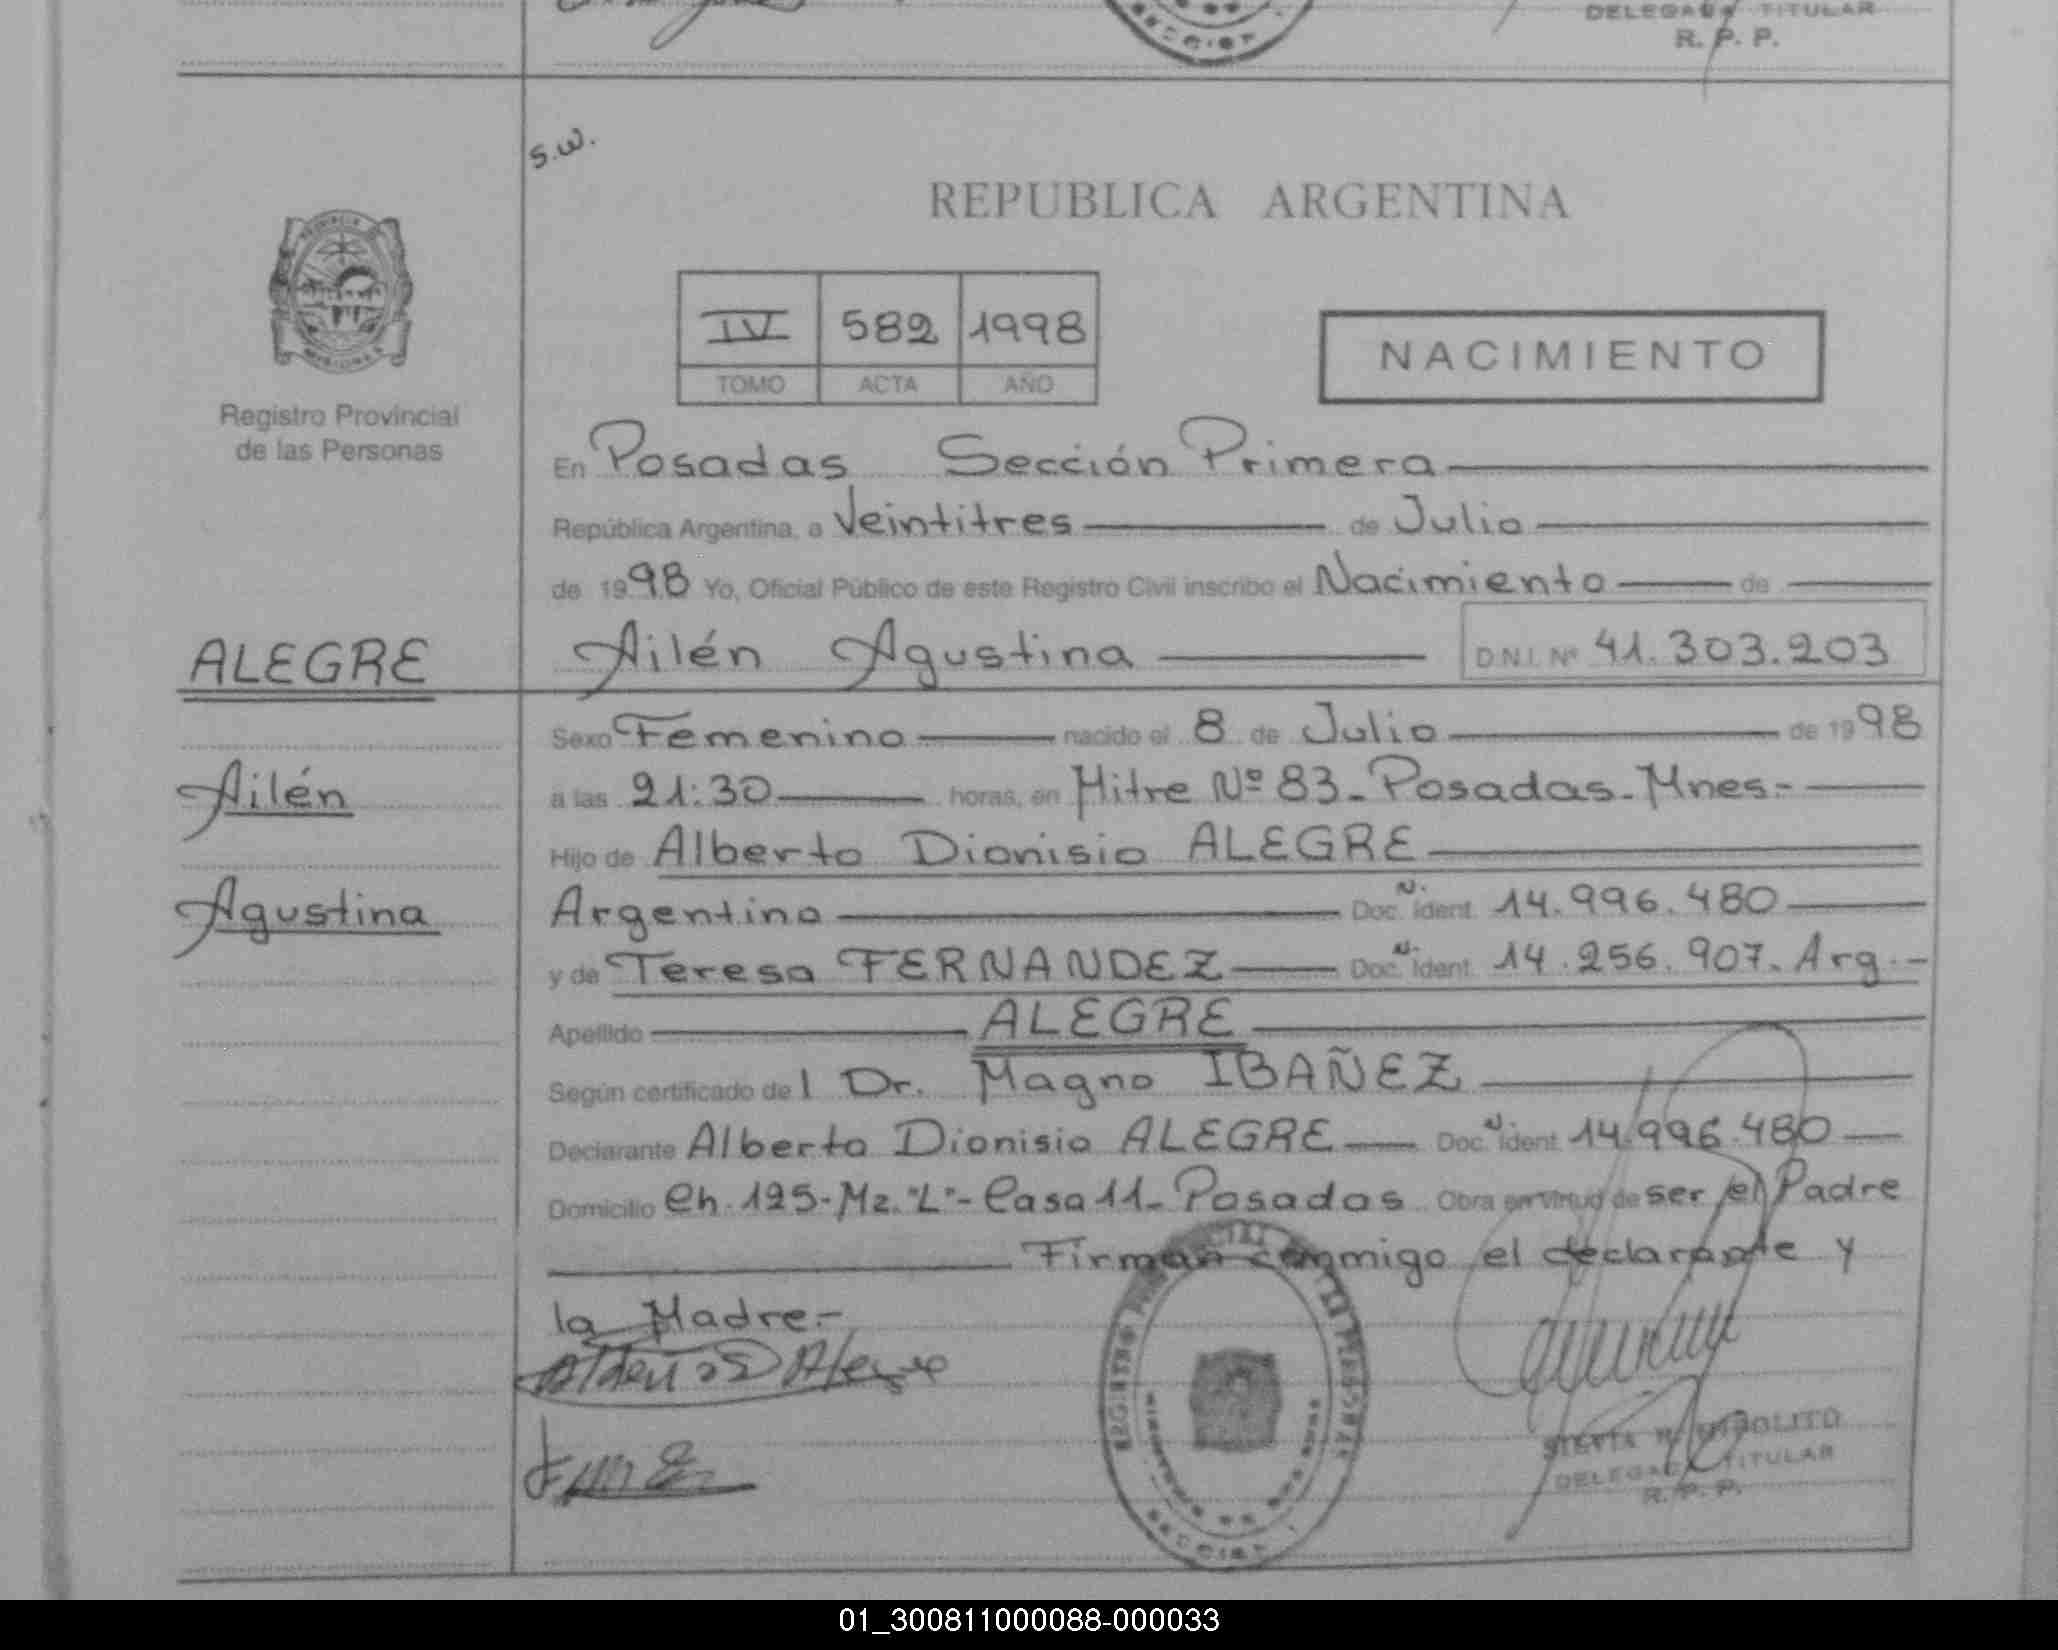 DELEGADA TITULAR
R. P. P.
s.w.
REPUBLICA ARGENTINA
IV 582 1998
TOMO ACTA AÑO
NACIMIENTO
Registro Provincial
de las Personas
En Posadas Sección Primera
República Argentina, a Veintitres de Julio
de 1998 Yo, Oficial Público de este Registro Civil inscribo el Nacimiento de
ALEGRE
Ailén Agustina D.N.I. Nº 41.303.203
Sexo Femenino nacido el 8 de Julio de 1998
Ailén
a las 21:30 horas, en Mitre Nº 83 - Posadas - Mnes.-
Hijo de Alberto Dionisio ALEGRE
Agustina
Argentino Doc. N. ident. 14.996.480
y de Teresa FERNANDEZ Doc. N. ident. 14.256.907. Arg.-
Apellido ALEGRE
Según certificado del Dr. Magno IBAÑEZ
Declarante Alberto Dionisio ALEGRE Doc. N. ident. 14.996.480
Domicilio Ch. 125 - Mz. "L" - Casa 11 - Posadas Obra en virtud de ser el Padre
Firman conmigo el declarante y
la Madre.-
DELEGADA TITULAR
R. P. P.
01_300811000088-000033